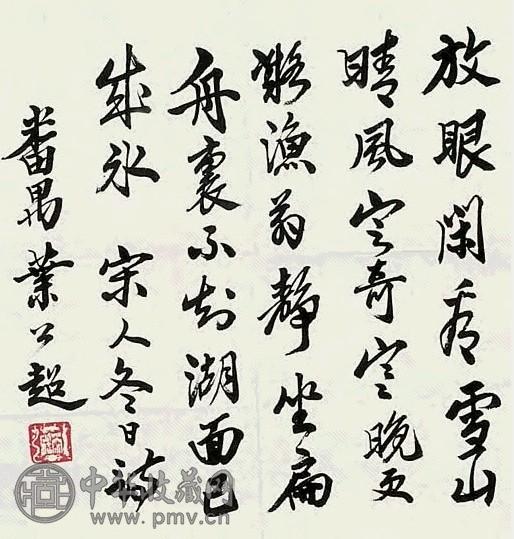 放眼閑看雪山
晴風定奇寒晚更
凝漁翁靜坐扁
舟裏不知湖面已
成冰 宋人冬日詩
番禺葉公超
中华收藏网
www.pmv.cn